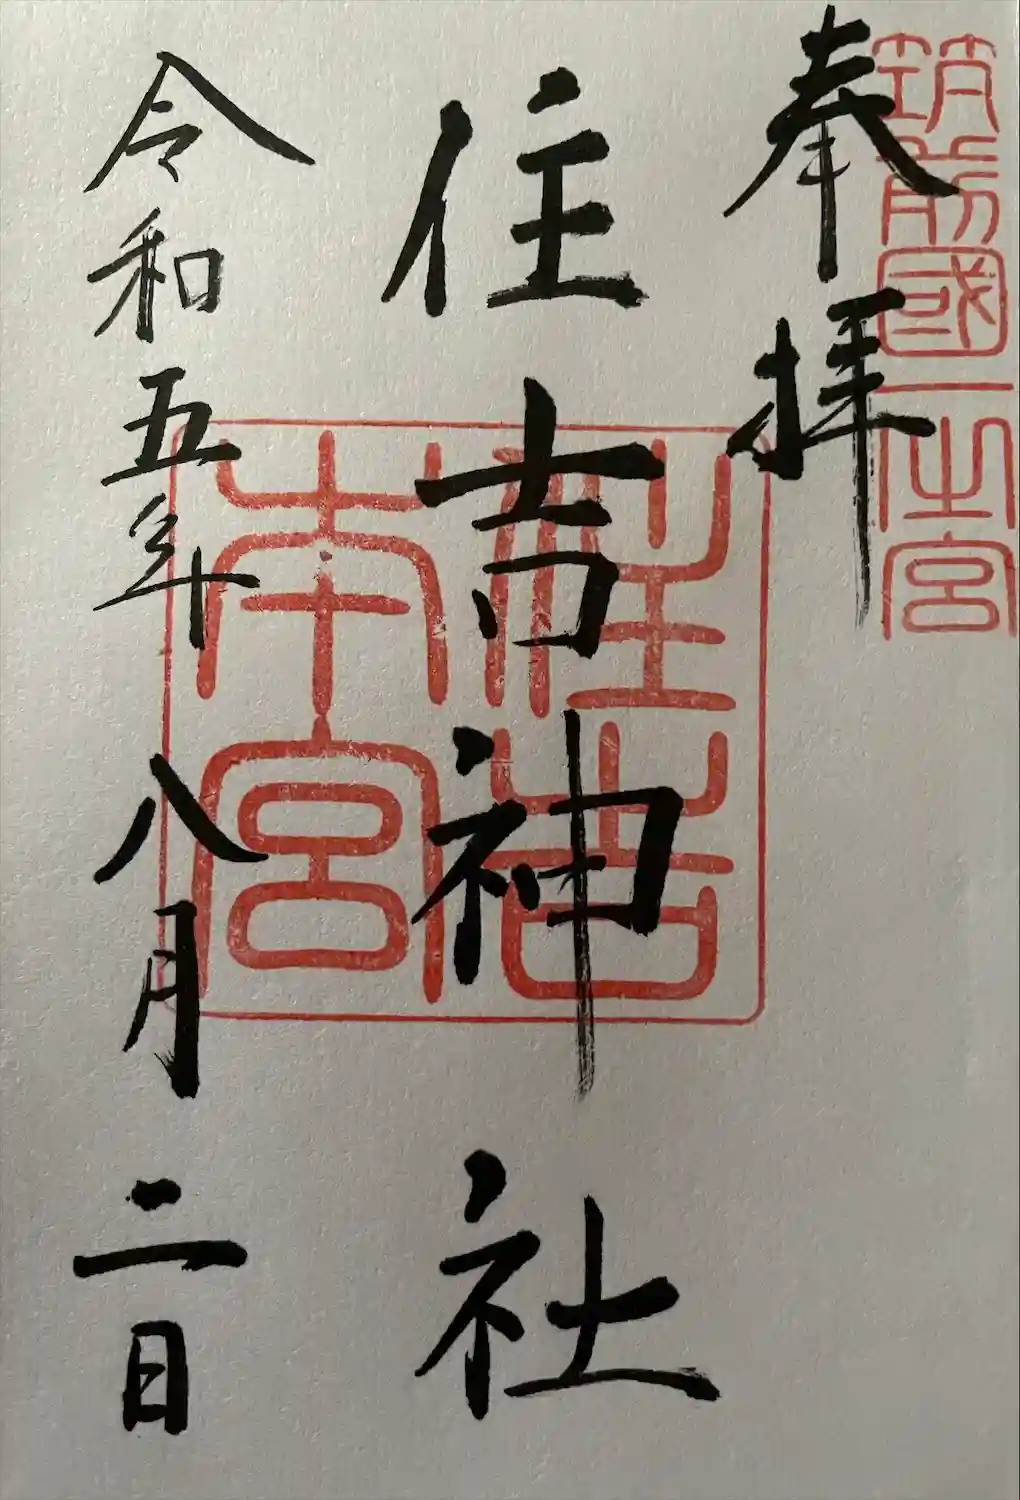 筑前國一之宮
奉拝
住吉神社
住吉本宮
令和五年八月二日